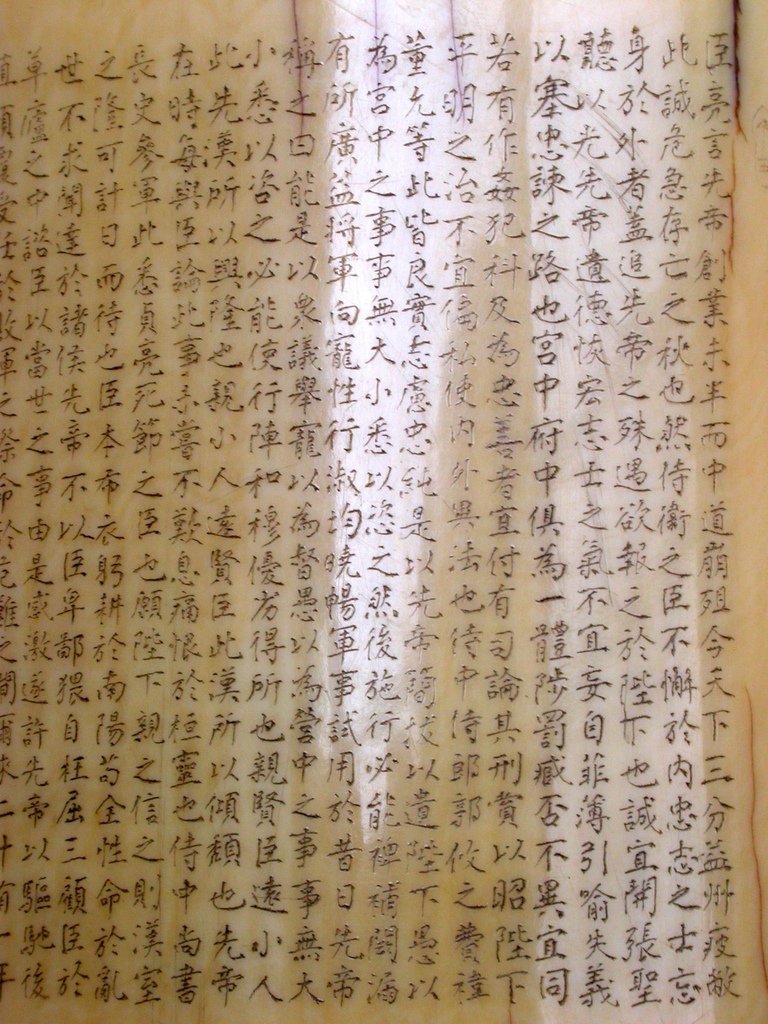 臣亮言先帝創業未半而中道崩殂今天下三分益州疲敝
此誠危急存亡之秋也然侍衛之臣不懈於內忠志之士忘
身於外者蓋追先帝之殊遇欲報之於陛下也誠宜開張聖
聽以光先帝遺德恢宏志士之氣不宜妄自菲薄引喻失義
以塞忠諫之路也宮中府中俱為一體陟罰臧否不異宜同
若有作姦犯科及為忠善者宜付有司論其刑賞以昭陛下
平明之治不宜偏私使內外異法也侍中侍郎郭攸之費禕
董允等此皆良實志慮忠純是以先帝簡拔以遺陛下愚以
為宮中之事事無大小悉以恣之然後施行必能裨補闕漏
有所廣益將軍向寵性行淑均曉暢軍事試用於昔日先帝
稱之曰能是以眾議舉寵以為督愚以為營中之事事無大
小悉以咨之必能使行陣和穆優劣得所也親賢臣遠小人
此先漢所以興隆也親小人遠賢臣此漢所以傾頹也先帝
在時每與臣論此事未嘗不歎息痛恨於桓靈也侍中尚書
長史參軍此悉貞亮死節之臣也願陛下親之信之則漢室
之隆可計日而待也臣本布衣躬耕於南陽苟全性命於亂
世不求聞達於諸侯先帝不以臣卑鄙猥自枉屈三顧臣於
草廬之中諮臣以當世之事由是感激遂許先帝以驅馳後
值傾覆受任於敗軍之際命於危難之間爾來二十有一年